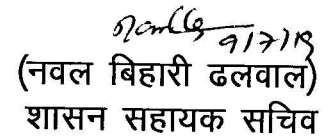 9/7/19
(नवल बिहारी ढलवाल)
शासन सहायक सचिव